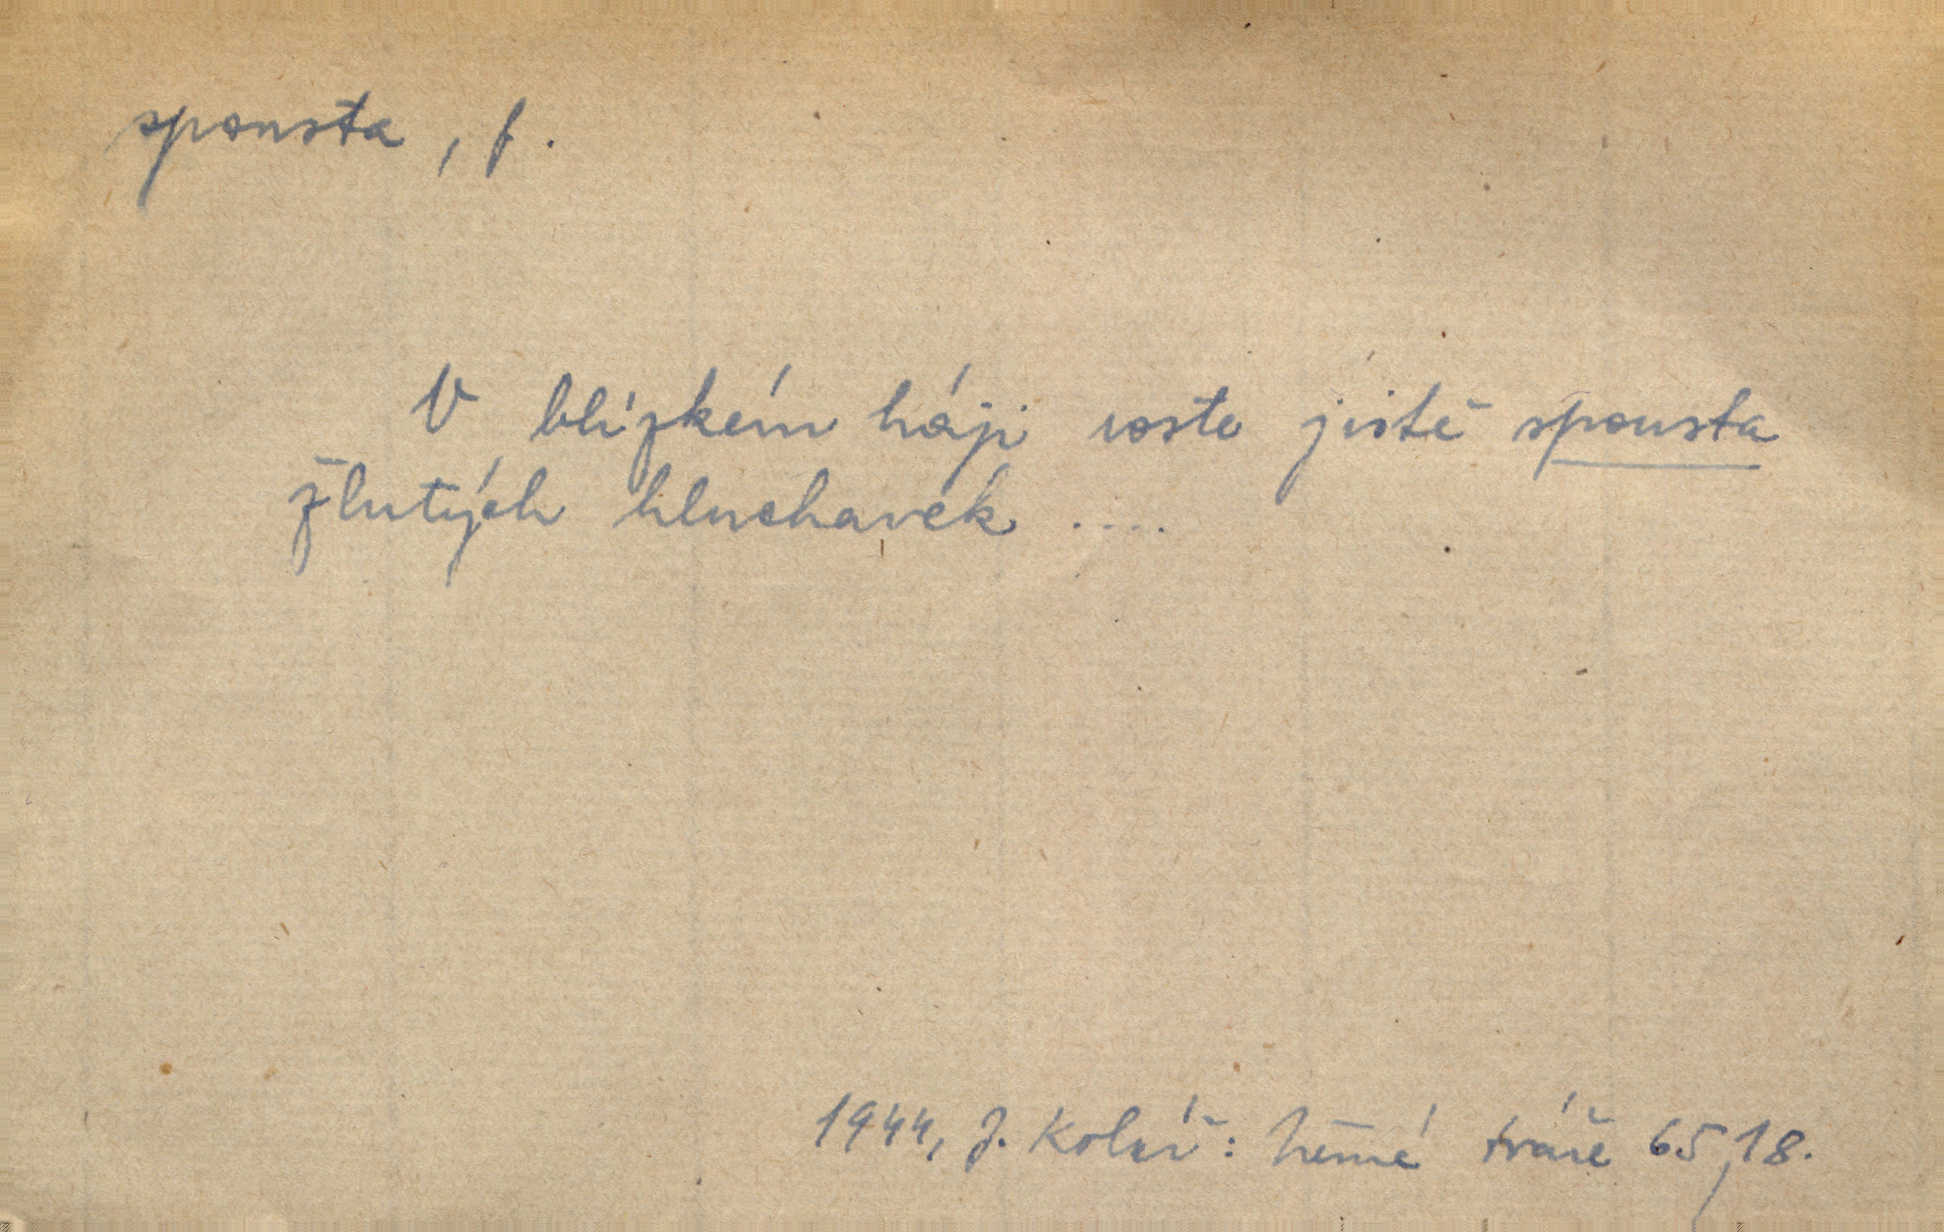 spousta, f.
V blízkém háji roste jistě spousta
žlutých hluchavek ....
1944, J. Kolář: Němé tváře 65,18.